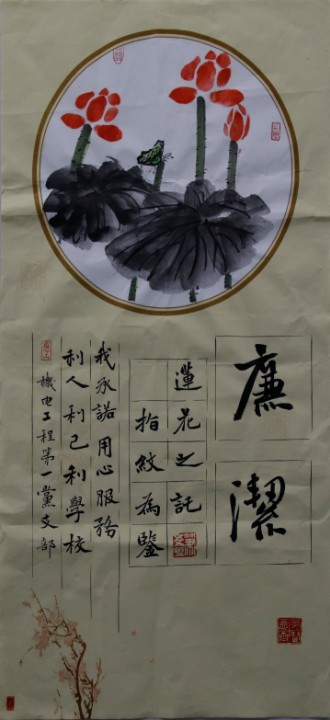 廉潔
蓮花之託
指紋為鑒
我承諾用心服務
利人利己利學校
機电工程第一黨支部